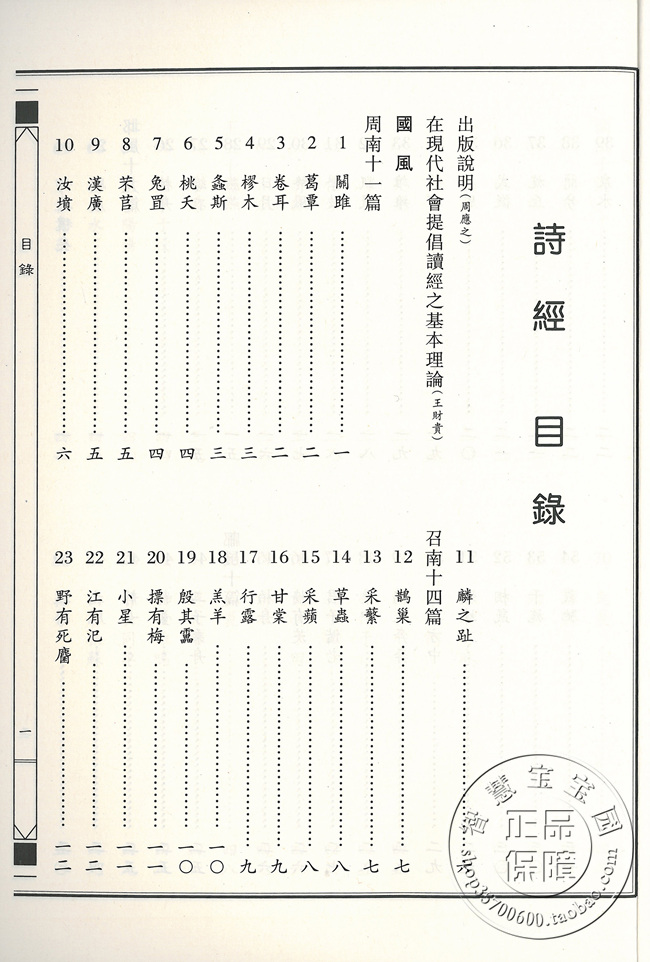 詩經 目錄
出版說明(周應之)
在現代社會提倡讀經之基本理論(王財貴)
國風
周南十一篇
1 關雎 一
2 葛覃 二
3 卷耳 二
4 樛木 三
5 螽斯 三
6 桃夭 四
7 兔罝 四
8 芣苢 五
9 漢廣 五
10 汝墳 六
11 麟之趾
召南十四篇
12 鵲巢 七
13 采蘩 七
14 草蟲 八
15 采蘋 八
16 甘棠 九
17 行露 九
18 羔羊 一〇
19 殷其靁 一〇
20 摽有梅 一一
21 小星 一一
22 江有汜 一二
23 野有死麕 一二
目錄
一
智慧宝宝园
正品
保障
shop33700600.taobao.com